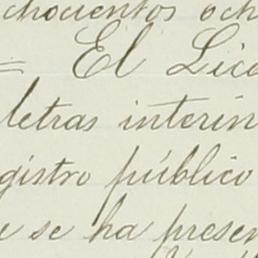 chocientos och
= El Lice
letras interin
gistro público
e se ha presen